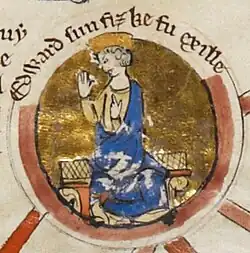 Edward sun fiz ke fu exille